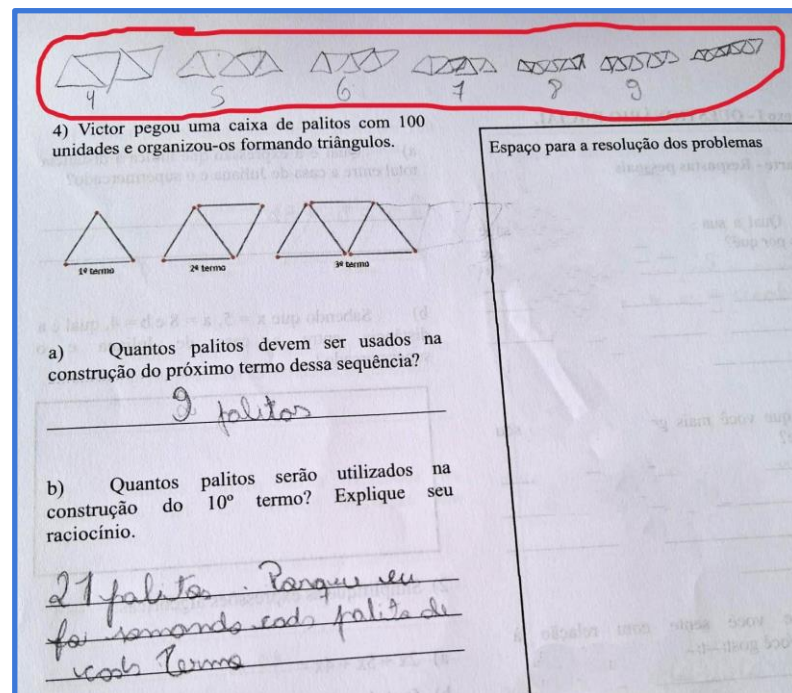 4 5 6 7 8 9
4) Victor pegou uma caixa de palitos com 100
unidades e organizou-os formando triângulos.
Espaço para a resolução dos problemas
1º termo 2º termo 3º termo
a) Quantos palitos devem ser usados na
construção do próximo termo dessa sequência?
9 palitos
b) Quantos palitos serão utilizados na
construção do 10º termo? Explique seu
raciocínio.
21 palitos. Porque eu
foi somando cada palito de
cada termo